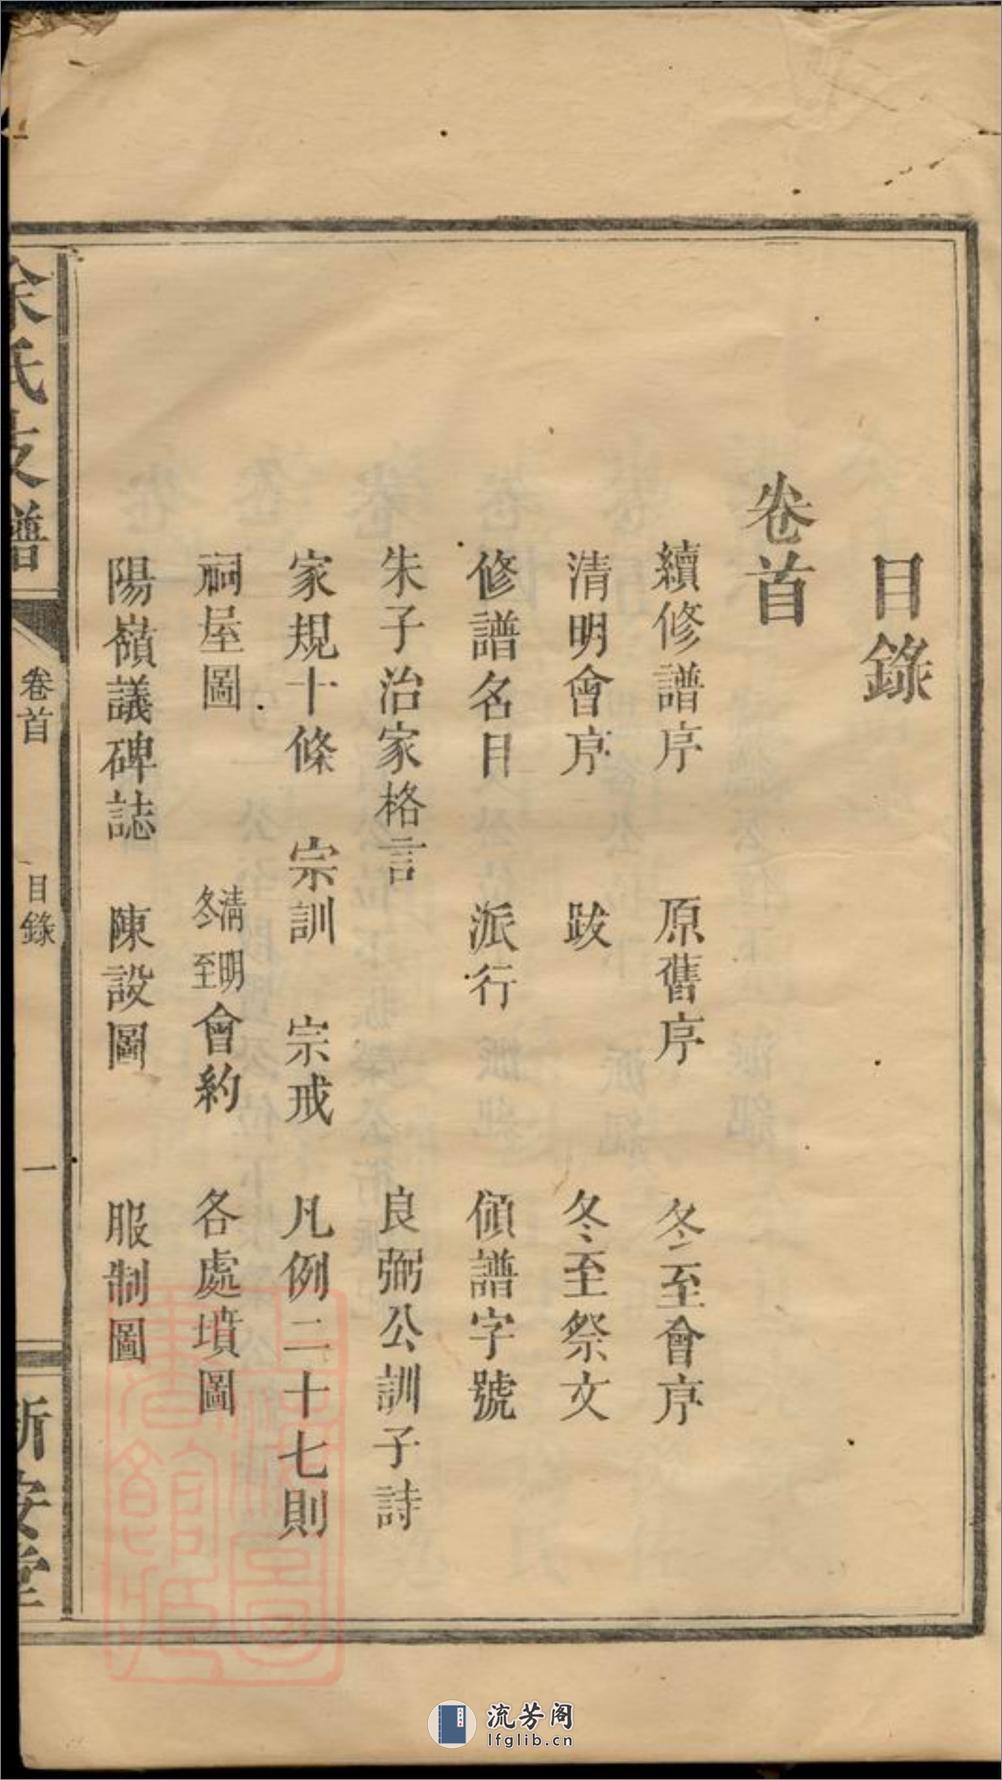 目錄
卷首
續修譜序　原舊序　冬至會序
清明會序　跋　冬至祭文
修譜名目　派行　領譜字號
朱子治家格言　良弼公訓子詩
家規十條　宗訓　宗戒　凡例二十七則
祠屋圖　清明冬至會約　各處墳圖
陽嶺議碑誌　陳設圖　服制圖
氏支譜　卷首　目錄　一　新安堂
流芳阁
lfglib.cn